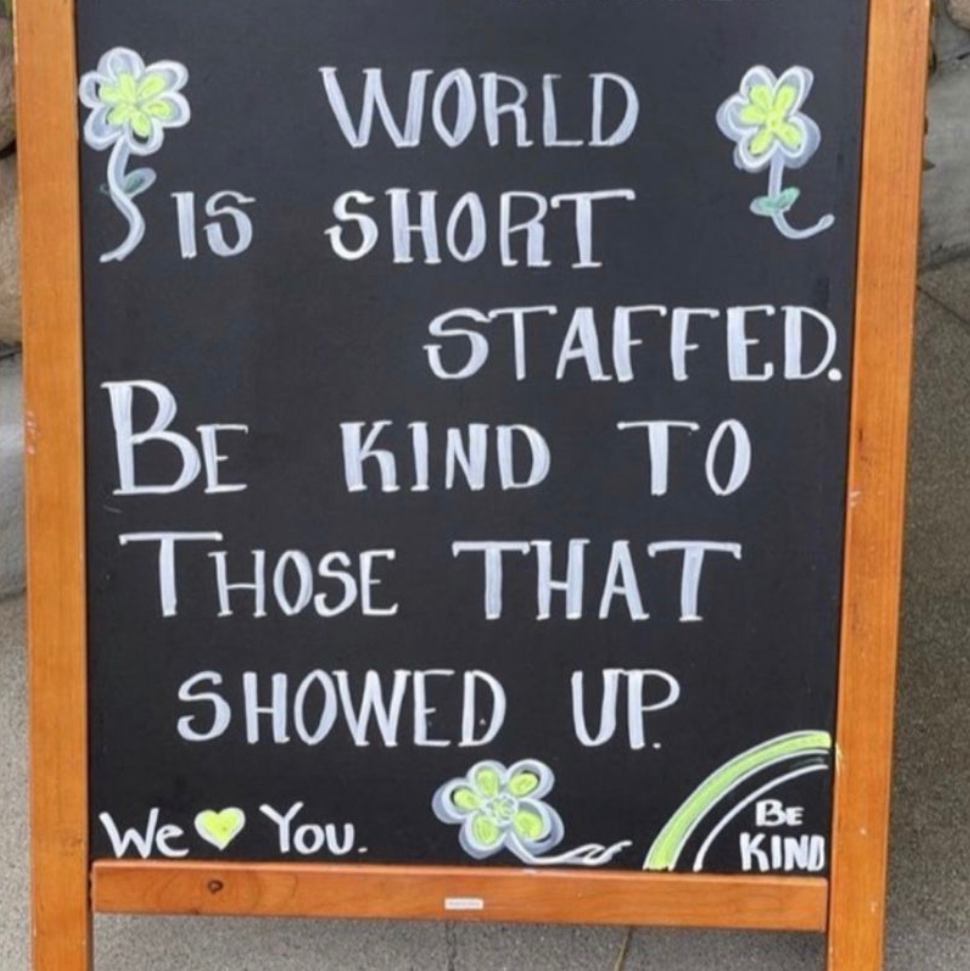 WORLD
IS SHORT
STAFFED.
BE KIND TO
THOSE THAT
SHOWED UP.
We You.
BE
KIND